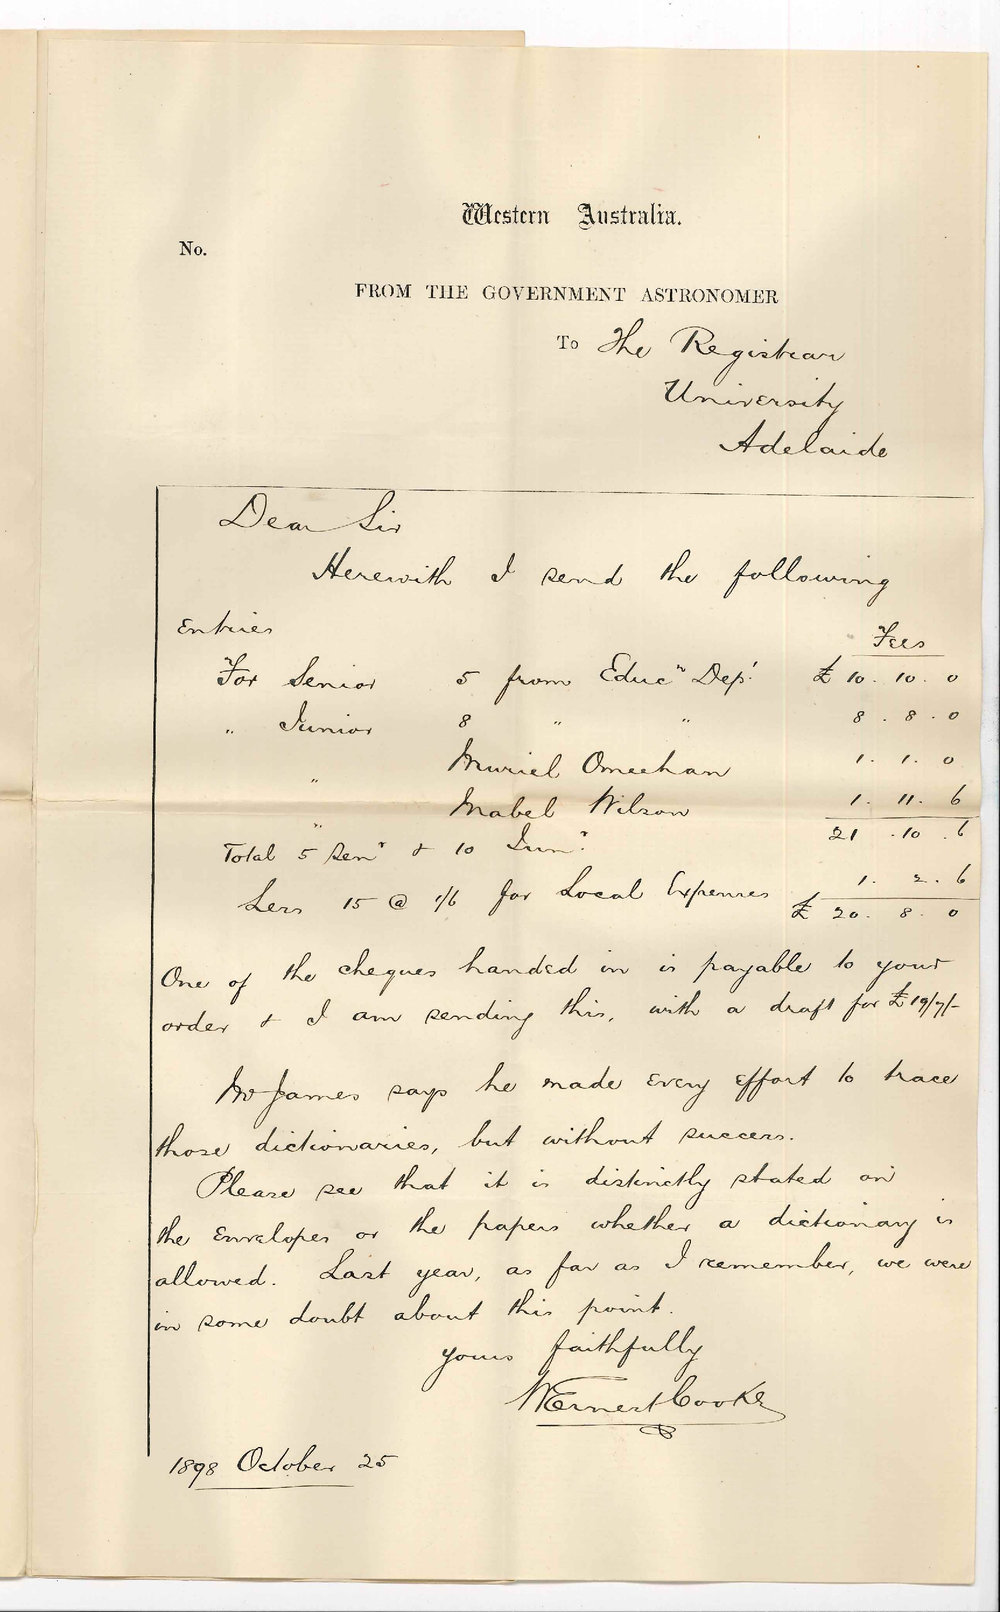 Western Australia.
No.
FROM THE GOVERNMENT ASTRONOMER
To The Registrar
University
Adelaide
Dear Sir
Herewith I send the following
Entries
Fees
For Senior 5 from Educn Dept £ 10. 10. 0
" Junior 8 " " 8. 8. 0
" Muriel Omeehan 1. 1. 0
" Mabel Wilson 1. 11. 6
21. 10. 6
Total 5 Senr & 10 Junr
Less 15 @ 1/6 for Local Expenses 1. 2. 6
£ 20. 8. 0
One of the cheques handed in is payable to your
order & I am sending this, with a draft for £19/7/-
Mr James says he made every effort to trace
those dictionaries, but without success.
Please see that it is distinctly stated on
the envelopes or the papers whether a dictionary is
allowed. Last year, as far as I remember, we were
in some doubt about this point.
yours faithfully
W Ernest Cooke
1898 October 25